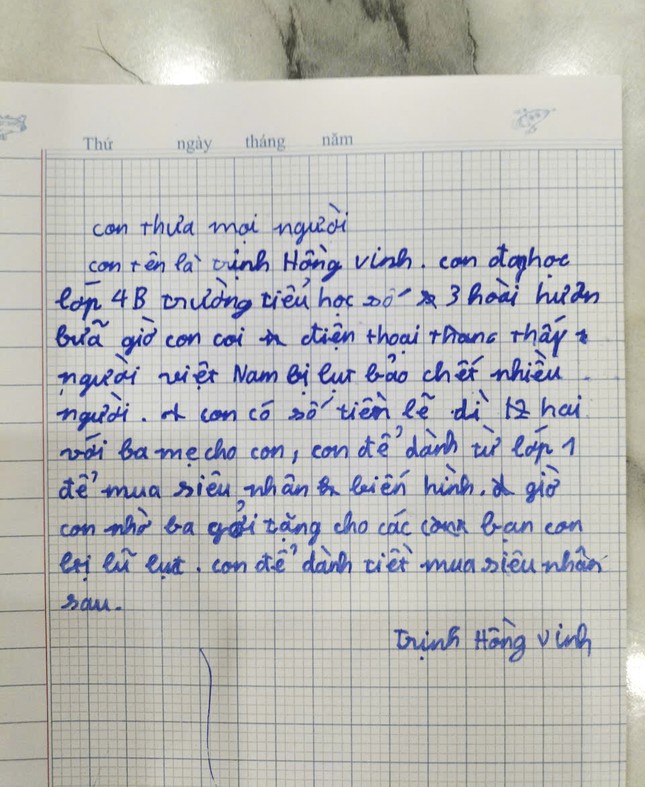 Thứ ngày tháng năm
con thưa mọi người
con tên là trịnh Hồng Vinh. con đang học
lớp 4B trường tiểu học số 3 hoài hươn
bữa giờ con coi điện thoại thang thấy
người việt Nam bị lụt bảo chết nhiều
người. con có số tiền lẽ dì hai
với ba mẹ cho con, con để dành từ lớp 1
để mua siêu nhân biến hình. giờ
con nhờ ba gởi tặng cho các bạn con
bị lũ lụt. con để dành tiết mua siêu nhân
sau.
Trịnh Hồng Vinh